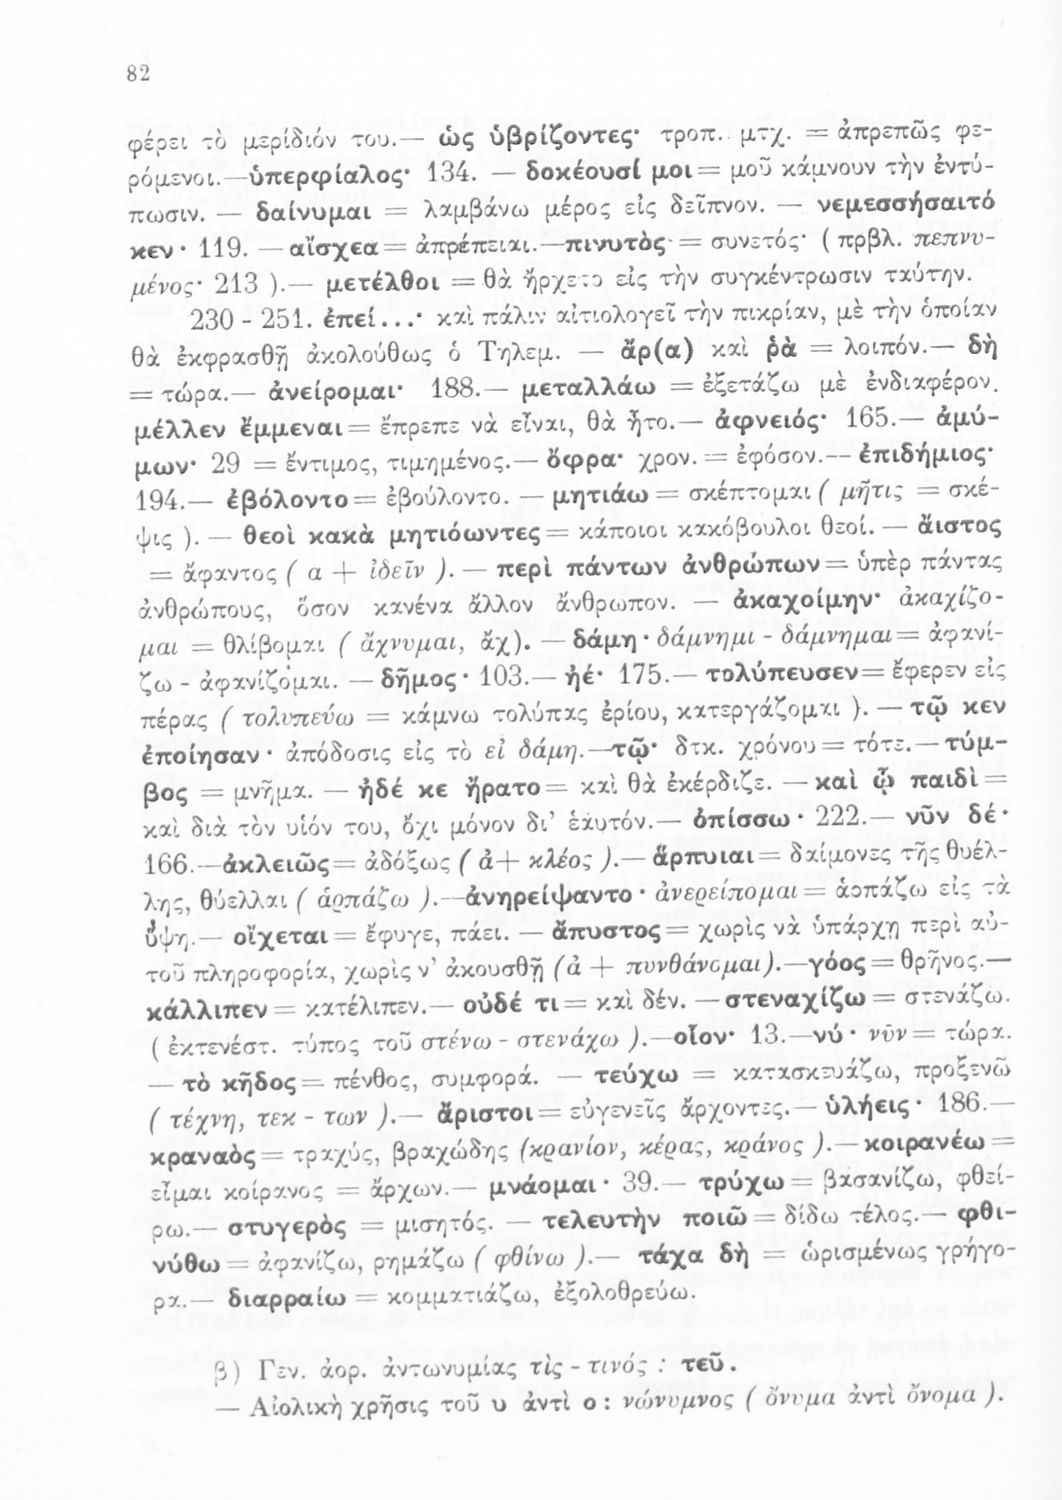 82
φέρει τὸ μερίδιόν του.— ὡς ὑβρίζοντες· τροπ. μτχ. = ἀπρεπῶς φε-
ρόμενοι.—ὑπερφίαλος· 134. — δοκέουσί μοι = μοῦ κάμνουν τὴν ἐντύ-
πωσιν. — δαίνυμαι = λαμβάνω μέρος εἰς δεῖπνον. — νεμεσσήσαιτό
κεν · 119. — αἴσχεα = ἀπρέπειαι.—πινυτὸς = συνετός· ( πρβλ. πεπνυ-
μένος· 213 ).— μετέλθοι = θὰ ἤρχετο εἰς τὴν συγκέντρωσιν ταύτην.
230 - 251. ἐπεί...· καὶ πάλιν αἰτιολογεῖ τὴν πικρίαν, μὲ τὴν ὁποίαν
θὰ ἐκφρασθῇ ἀκολούθως ὁ Τηλεμ. — ἄρ(α) καὶ ῥὰ = λοιπόν.— δὴ
= τώρα.— ἀνείρομαι· 188.— μεταλλάω = ἐξετάζω μὲ ἐνδιαφέρον.
μέλλεν ἔμμεναι = ἔπρεπε νὰ εἶναι, θὰ ἦτο.— ἀφνειός· 165.— ἀμύ-
μων· 29 = ἔντιμος, τιμημένος.— ὄφρα· χρον. = ἐφόσον.-- ἐπιδήμιος·
194.— ἐβόλοντο = ἐβούλοντο. — μητιάω = σκέπτομαι ( μῆτις = σκέ-
ψις ). — θεοὶ κακὰ μητιόωντες = κάποιοι κακόβουλοι θεοί. — ἄιστος
= ἄφαντος ( α + ἰδεῖν ). — περὶ πάντων ἀνθρώπων = ὑπὲρ πάντας
ἀνθρώπους, ὅσον κανένα ἄλλον ἄνθρωπον. — ἀκαχοίμην· ἀκαχίζο-
μαι = θλίβομαι ( ἄχνυμαι, ἄχ). — δάμη · δάμνημι - δάμνημαι = ἀφανί-
ζω - ἀφανίζομαι. — δῆμος · 103.— ἠέ· 175.— τολύπευσεν = ἔφερεν εἰς
πέρας ( τολυπεύω = κάμνω τολύπας ἐρίου, κατεργάζομαι ). — τῷ κεν
ἐποίησαν · ἀπόδοσις εἰς τὸ εἰ δάμη.—τῷ· δτκ. χρόνου = τότε.— τύμ-
βος = μνῆμα. — ἠδέ κε ἤρατο = καὶ θὰ ἐκέρδιζε. — καὶ ᾧ παιδὶ =
καὶ διὰ τὸν υἱόν του, ὄχι μόνον δι’ ἑαυτόν.— ὀπίσσω · 222.— νῦν δέ·
166.—ἀκλειῶς = ἀδόξως ( ἀ + κλέος ).— ἅρπυιαι = δαίμονες τῆς θυέλ-
λης, θύελλαι ( ἁρπάζω ).—ἀνηρείψαντο · ἀνερείπομαι = ἁρπάζω εἰς τὰ
ὕψη.— οἴχεται = ἔφυγε, πάει. — ἄπυστος = χωρὶς νὰ ὑπάρχῃ περὶ αὐ-
τοῦ πληροφορία, χωρὶς ν’ ἀκουσθῇ (ἀ + πυνθάνομαι).—γόος = θρῆνος.—
κάλλιπεν = κατέλιπεν.— οὐδέ τι = καὶ δέν. — στεναχίζω = στενάζω.
( ἐκτενέστ. τύπος τοῦ στένω - στενάχω ).—οἶον· 13.—νύ · νῦν = τώρα.
— τὸ κῆδος = πένθος, συμφορά. — τεύχω = κατασκευάζω, προξενῶ
( τέχνη, τεκ - των ).— ἄριστοι = εὐγενεῖς ἄρχοντες.— ὑλήεις · 186.—
κραναὸς = τραχύς, βραχώδης (κρανίον, κέρας, κράνος ).— κοιρανέω =
εἶμαι κοίρανος = ἄρχων.— μνάομαι · 39.— τρύχω = βασανίζω, φθεί-
ρω.— στυγερὸς = μισητός. — τελευτὴν ποιῶ = δίδω τέλος.— φθι-
νύθω = ἀφανίζω, ρημάζω ( φθίνω ).— τάχα δὴ = ὡρισμένως γρήγο-
ρα.— διαρραίω = κομματιάζω, ἐξολοθρεύω.
β) Γεν. ἀορ. ἀντωνυμίας τὶς - τινός : τεῦ.
— Αἰολικὴ χρῆσις τοῦ υ ἀντὶ ο : νώνυμνος ( ὄνυμα ἀντὶ ὄνομα ).